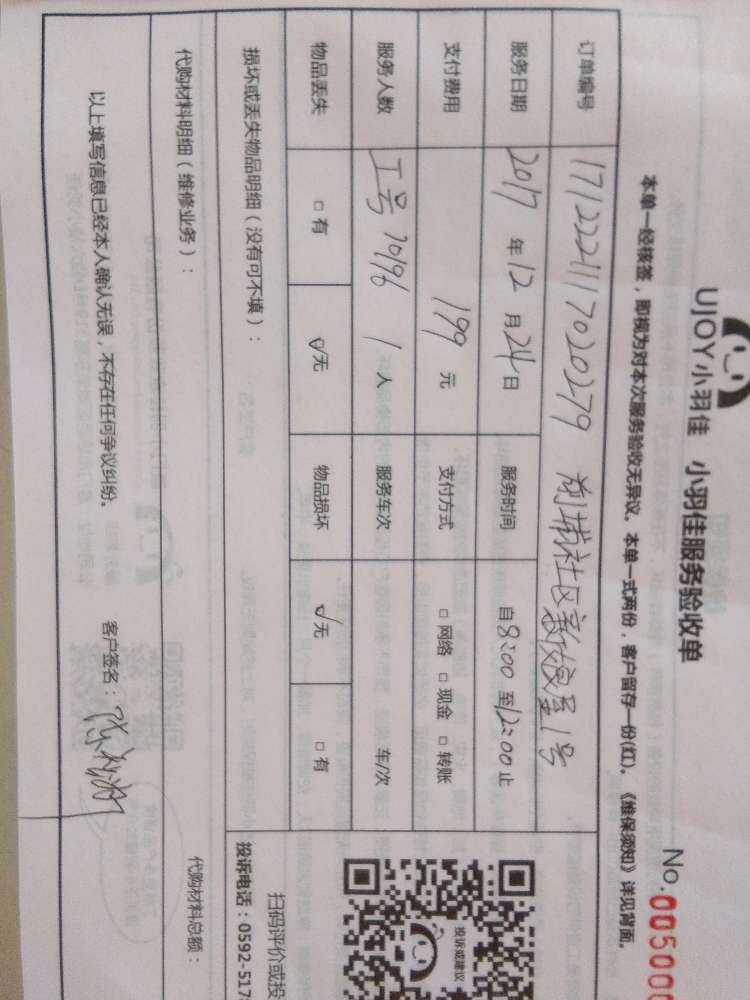 UJOY小羽佳 小羽佳服务验收单
No.005000
本单一经核签，即视为对本次服务验收无异议。本单一式两份，客户留存一份(红)。《维保须知》详见背面。
订单编号 1712221117020279 社区 1号
服务日期 2017 年 12 月 24 日 服务时间 自 8:00 至 12:00 止
支付费用 199 元 支付方式 □ 网络 □ 现金 □ 转账
服务人数 工号 70196 1 人 服务车次 车/次
物品丢失 □ 有 ☑ 无 物品损坏 ☑ 无 □ 有
损坏或丢失物品明细（没有可不填）：
代购材料明细（维修业务）： 代购材料总额：
以上填写信息已经本人确认无误，不存在任何争议纠纷。 客户签名：
投诉或建议
扫码评价或投
投诉电话：0592-517